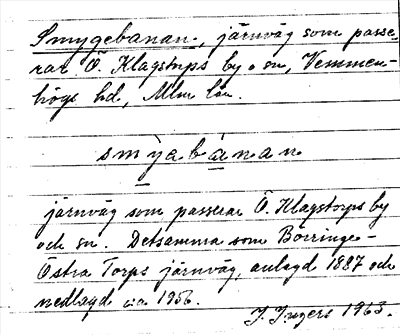 Smygebanan, järnväg som passe-
rar Ö. Klagstorps by o sn, Vemmen-
högs hd, Mlm län.
smỳabànan
järnväg som passerar Ö. Klagstorps by
och sn. Detsamma som Börringe-
Östra Torps järnväg, anlagd 1887 och
nedlagd c:a 1956.
I. Ingers 1963.